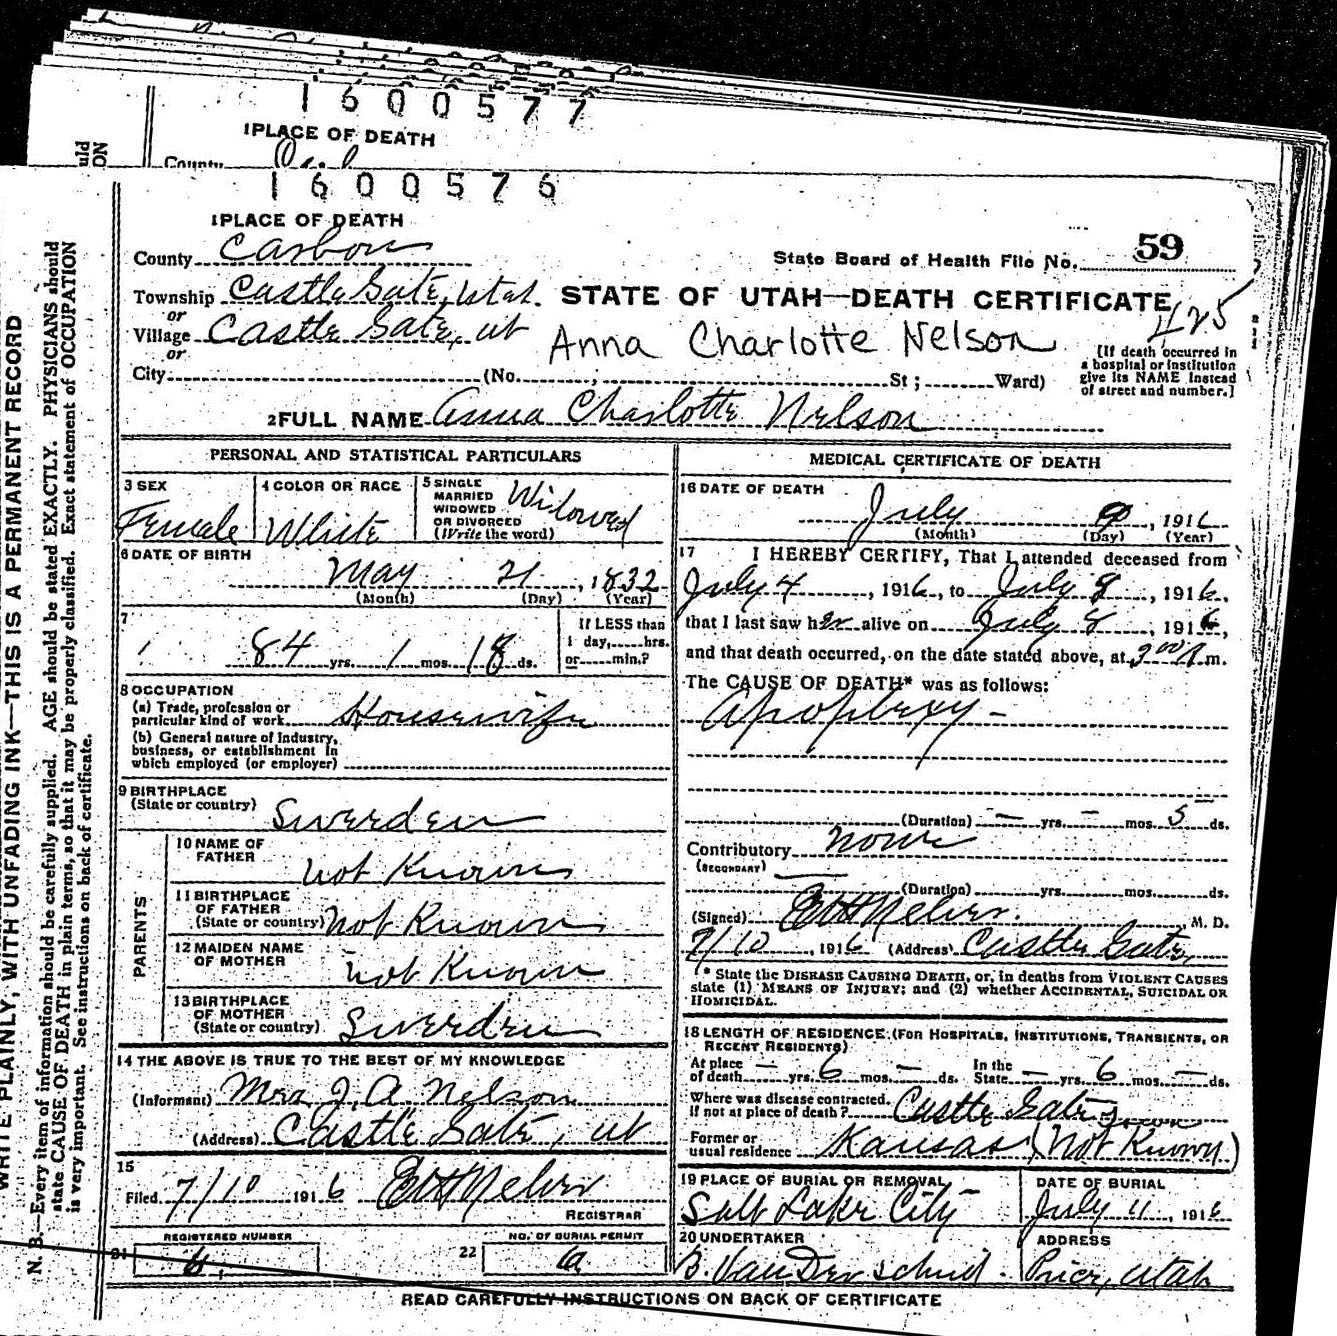 1600577
1 PLACE OF DEATH
County
1600576
1 PLACE OF DEATH
County Carbon
State Board of Health File No. 59
Township Castle Gate, Utah.
or
STATE OF UTAH—DEATH CERTIFICATE
425
Village Castle Gate, ut
or
Anna Charlotte Nelson
[If death occurred in
a hospital or institution
give its NAME instead
of street and number.]
City (No. , St ; Ward)
2 FULL NAME Anna Charlotte Nelson
PERSONAL AND STATISTICAL PARTICULARS
3 SEX
Female
4 COLOR OR RACE
White
5 SINGLE
MARRIED
WIDOWED
OR DIVORCED
(Write the word)
Widowed
6 DATE OF BIRTH
May 21, 1832
(Month) (Day) (Year)
7
84 yrs. 1 mos. 18 ds.
If LESS than
1 day, hrs.
or min.?
8 OCCUPATION
(a) Trade, profession or
particular kind of work Housewife
(b) General nature of Industry,
business, or establishment in
which employed (or employer)
9 BIRTHPLACE
(State or country) Sweeden
PARENTS
10 NAME OF
FATHER
not Known
11 BIRTHPLACE
OF FATHER
(State or country) not Known
12 MAIDEN NAME
OF MOTHER
not Known
13 BIRTHPLACE
OF MOTHER
(State or country) Sweeden
14 THE ABOVE IS TRUE TO THE BEST OF MY KNOWLEDGE
(Informant) Mrs J. A. Nelson
(Address) Castle Gate, ut
15
Filed 7/10 1916
REGISTRAR
REGISTERED NUMBER
21
NO. OF BURIAL PERMIT
22
MEDICAL CERTIFICATE OF DEATH
16 DATE OF DEATH
July 9, 1916
(Month) (Day) (Year)
17 I HEREBY CERTIFY, That I attended deceased from
July 4, 1916, to July 8, 1916.
that I last saw her alive on July 8, 1916,
and that death occurred, on the date stated above, at 3 00 A m.
The CAUSE OF DEATH* was as follows:
Apoplexy -
(Duration) — yrs. — mos. 5 ds.
Contributory None
(SECONDARY)
(Duration) yrs. mos. ds.
(Signed) M. D.
7/10, 1916 (Address) Castle Gate,
* State the DISEASE CAUSING DEATH, or, in deaths from VIOLENT CAUSES
state (1) MEANS OF INJURY; and (2) whether ACCIDENTAL, SUICIDAL OR
HOMICIDAL.
18 LENGTH OF RESIDENCE (FOR HOSPITALS, INSTITUTIONS, TRANSIENTS, OR
RECENT RESIDENTS)
At place
of death — yrs. 6 mos. — ds.
In the
State — yrs. 6 mos. — ds.
Where was disease contracted,
if not at place of death? Castle Gate
Former or
usual residence Kansas (Not Known)
19 PLACE OF BURIAL OR REMOVAL
Salt Lake City
DATE OF BURIAL
July 11, 1916
20 UNDERTAKER
ADDRESS
Price, Utah
READ CAREFULLY INSTRUCTIONS ON BACK OF CERTIFICATE
WRITE PLAINLY, WITH UNFADING INK—THIS IS A PERMANENT RECORD
N. B.—Every item of information should be carefully supplied. AGE should be stated EXACTLY. PHYSICIANS should
state CAUSE OF DEATH in plain terms, so that it may be properly classified. Exact statement of OCCUPATION
is very important. See instructions on back of certificate.